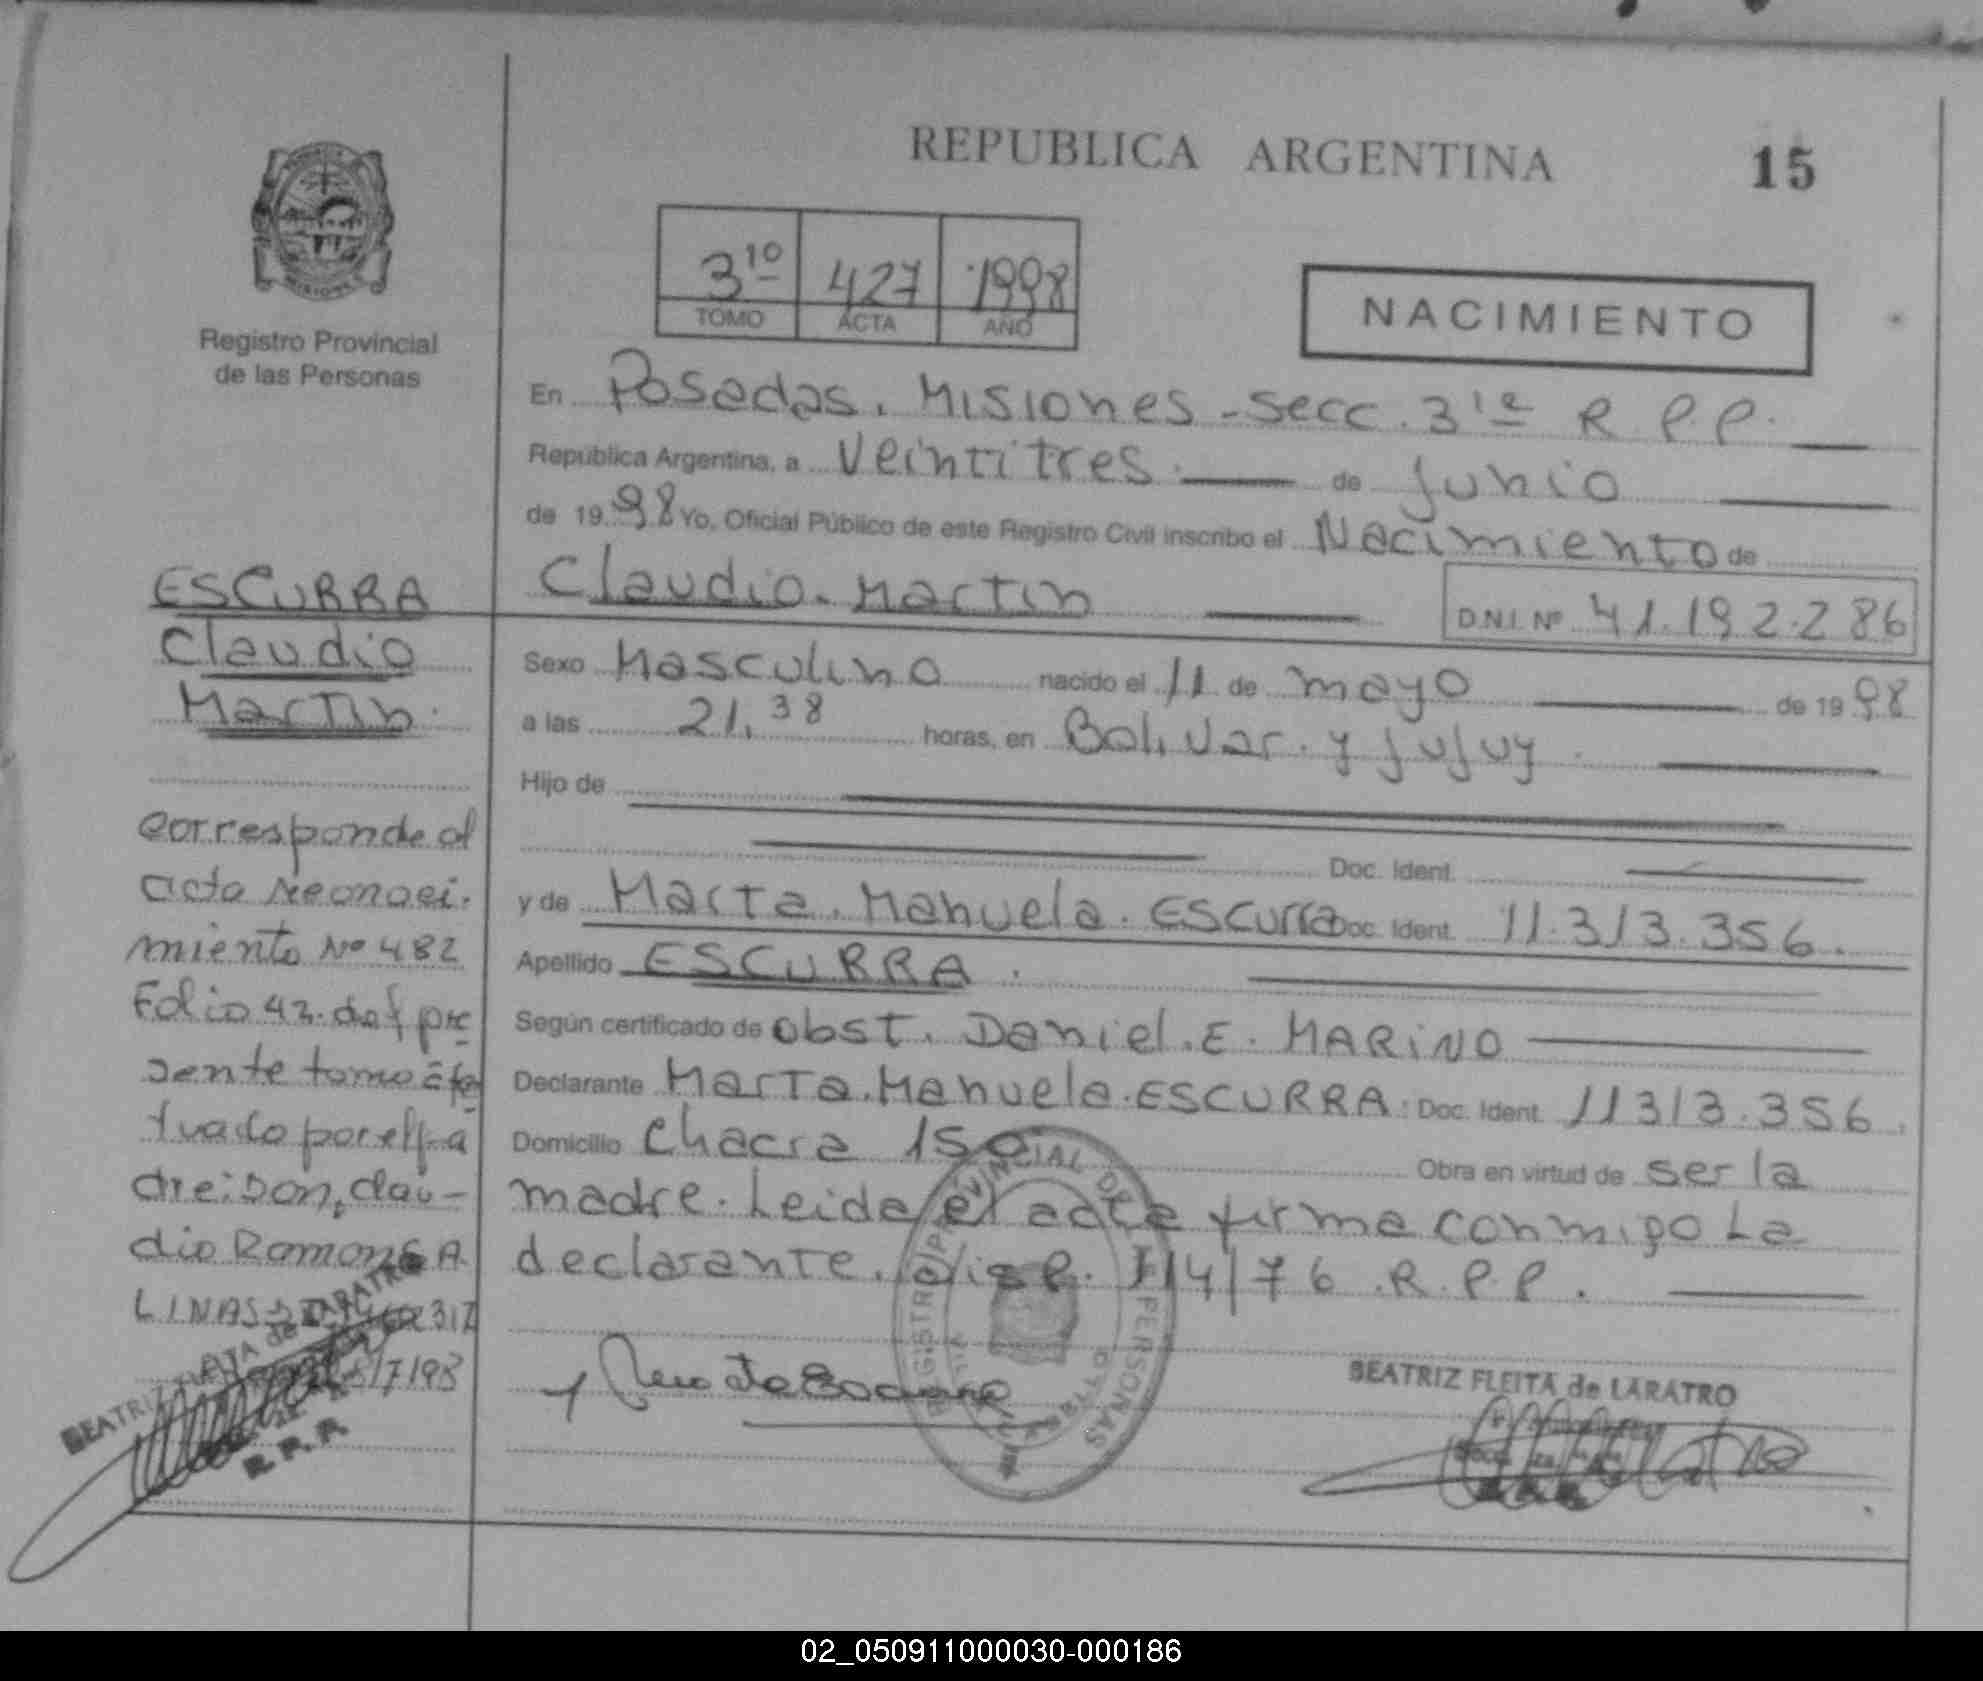 REPUBLICA ARGENTINA
15
Registro Provincial
de las Personas
MISIONES
3 1º 427 1998
TOMO ACTA AÑO
NACIMIENTO
En Posadas. Misiones - secc. 3 1ª R.P.P.
República Argentina, a veintitres. de junio
de 1998 Yo, Oficial Público de este Registro Civil inscribo el Nacimiento de
Claudio. Martin
D.N.I. Nº 41.192.286
Sexo Masculino nacido el 11 de mayo de 1998
a las 21,38 horas, en Bolivar. y jujuy.
Hijo de
Doc. Ident.
y de Marta. Manuela. Escurra Doc. Ident. 11.313.356.
Apellido ESCURRA.
Según certificado de obst. Daniel. E. MARiNO
Declarante Marta. Manuela. ESCURRA. Doc. Ident. 11313.356.
Domicilio Chacra 150 Obra en virtud de ser la
madre. Leida el acta firma conmigo La
declarante. 114/76 .R.P.P.
BEATRIZ FLEITA de LARATRO
ESCURRA
Claudio
Martin.
Corresponde al
acta
miento Nº 482
Folio 42. del pre
sente tomo efe
tuado por el pa
dre: Don, Clau-
dio Ramon
LINAS
/7/98
BEATRIZ FLEITA de LARATRO
R.P.P.
REGISTRO PROVINCIAL DE PERSONAS
02_050911000030-000186